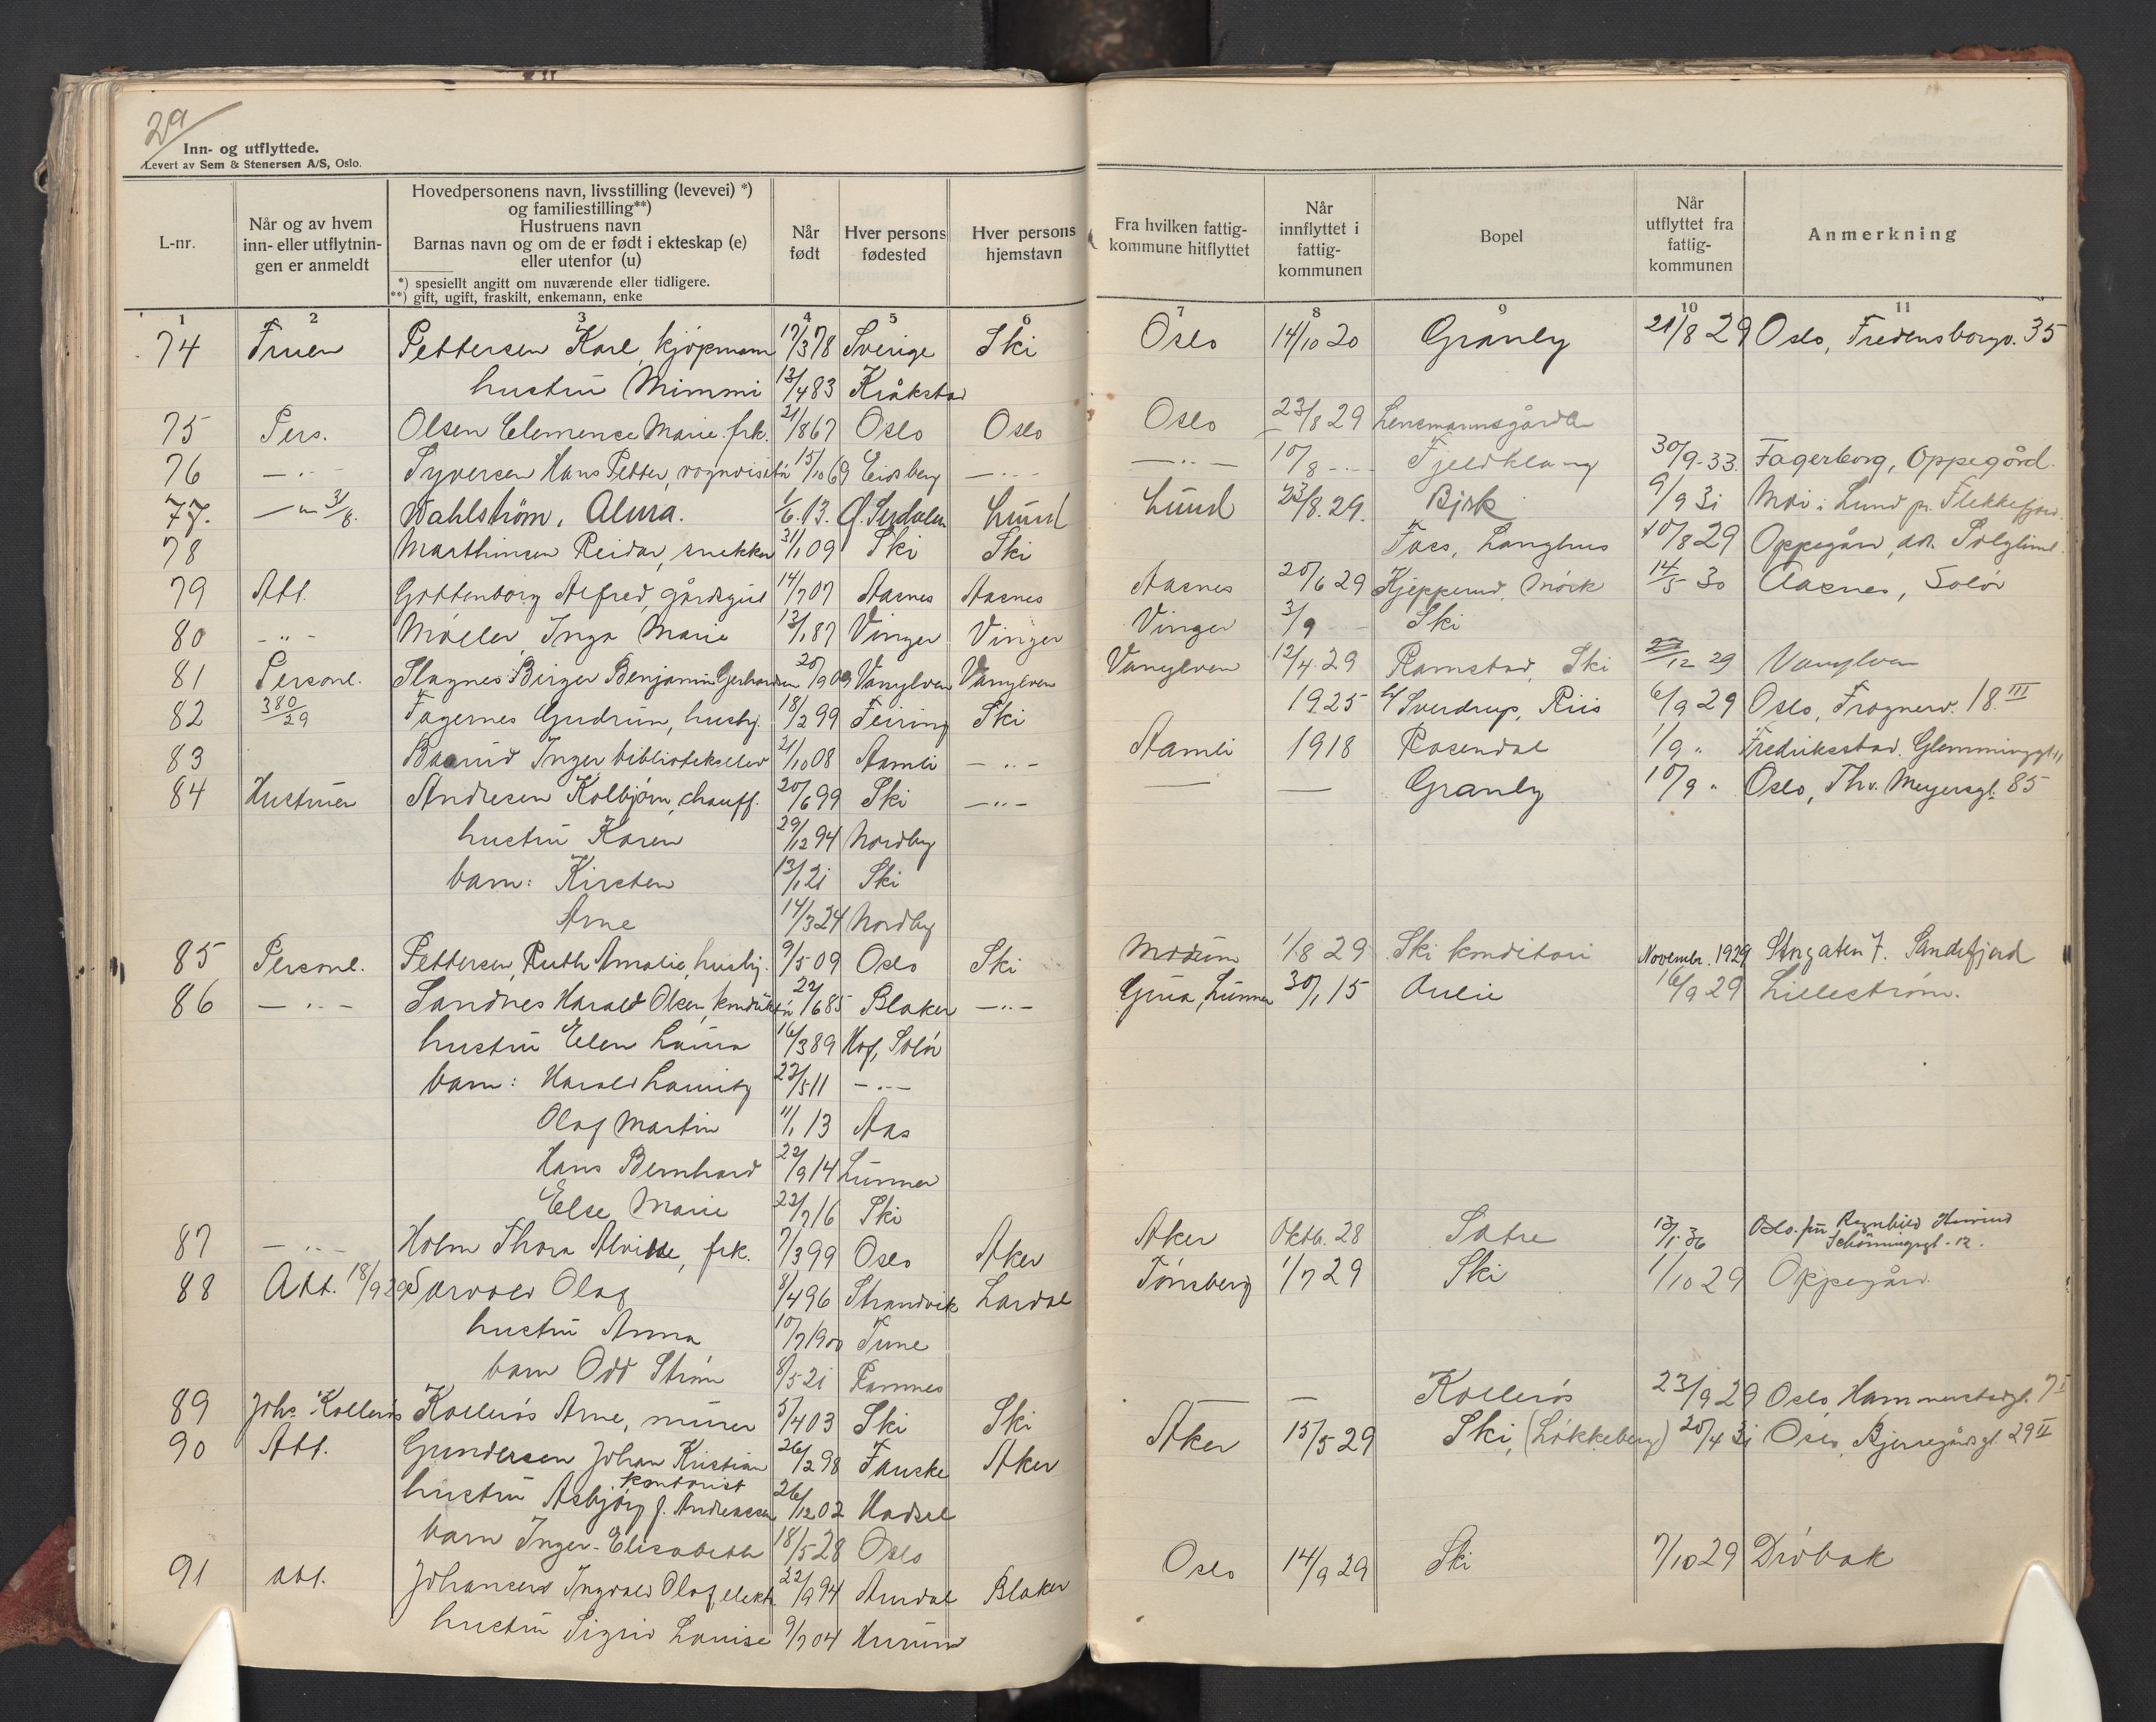 29
Inn- og utflyttede.
Levert av Sem & Stenersen A/S, Oslo.
L-nr.
Når og av hvem inn- eller utflytnin-gen er anmeldt
Hovedpersonens navn, livsstilling (levevei) *)
og familiestilling**)
Hustruens navn
Barnas navn og om de er født i ekteskap (e)
eller utenfor (u)
*) spesiellt angitt om nuværende eller tidligere.
**) gift, ugift, fraskilt, enkemann, enke
Når født
Hver persons fødested
Hver persons hjemstavn
Fra hvilken fattig-kommune hitflyttet
Når innflyttet i fattig-kommunen
Bopel
Når utflyttet fra fattig-kommunen
Anmerkning
1 2 3 4 5 6 7 8 9 10 11
74 Fruen Pettersen Karl, kjøpmann 17/3 78 Sverige Ski Oslo 14/10 20 Granly 21/8 29 Oslo, Fredensborgv. 35
hustru Mimmi 13/4 83 Kråkstad
75 Pers. Olsen Clemence Marie frk. 21/1 867 Oslo Oslo Oslo 23/8 29 Lensmannsgården
76 — " — Syversen Hans Petter, vognvisitør 15/10 69 Eidsberg — " — — " — 10/8 — Fjeldklang 30/9-33. Fagerborg, Oppegård.
77. — " 31/8. Wahlstrøm, Alma. 1/6.13. Ø. Sirdalen Lund Lund 23/8.29. Bjrk 9/9 31 Moi i Lund pr. Flekkefjord.
78 Marthinsen Reidar, snekker 31/1 09 Ski Ski Foss, Langhus 10/8 29 Oppegård, adr. Solglimt.
79 Att. Gottenborg Alfred, gårdsgut 14/7 07 Aasnes Aasnes Aasnes 20/6 29 Kjepperud, Mørk 14/5 30 Aasnes, Solør
80 - " - Møller, Inga Marie 13/1 87 Vinger Vinger Vinger 3/9 — Ski
81 Personl. Slagnes Birger Benjamin Gerhardsen 20/9 09 Vanylven Vanylven Vanylven 12/4 29 Ramstad, Ski 27/12 29 Vanylven
82 380/29 Fagernes Gudrun, hushj. 18/2 99 Feiring Ski 1925 h/ Sverdrup, Riis 6/9 29 Oslo, Frognerv. 18 III
83 Inger bibliotekselev 21/10 08 Aamli — " — Aamli 1918 Rosendal 1/9 " Fredrikstad. Glemminggt. 11
84 Hustruen Andresen Kolbjørn, chauff. 20/6 99 Ski — " — — — Granly 10/9 " Oslo, Thv. Meyersgt. 85
hustru Karen 29/12 94 Nordby
barn: Kirsten 13/1 21 Ski
Arne 14/3 24 Nordby
85 Personl. Pettersen, Ruth Amalie, hushj. 9/5 09 Oslo Ski Modum 1/8 29 Ski konditori Novembr. 1929 Storgaten 7. Sandefjord
86 — " — Sandnes Harald Olsen, konduktør 22/6 85 Blaker — " — Grua, Lunner 30/1 15 Aulie 16/9 29 Lillestrøm.
hustru Elen Laura 16/3 89 Hof, Solør
barn: Harald Lauritz 23/5 11 — " —
Olaf Martin 11/1 13 Aas
Hans Bernhard 22/9 14 Lunner
Else Marie 23/7 16 Ski
87 — " — Holm Thora Alvilde, frk. 7/3 99 Oslo Aker Aker Oktb. 28 Sætre 13/1-36 Oslo. fru Ragnhild Schönningsgt - 12.
88 Att. 18/9 29 Olaf 8/4 96 Strandvik Lardal Tønsberg 1/7 29 Ski 1/10 29 Oppegård.
hustru Anna 10/7 1900 Tune
barn Odd Strøm 8/5 21 Ramnes
89 Johs. Kollerøs Kollerøs Arne, murer 5/4 03 Ski Ski — — Kollerøs 23/9 29 Oslo Hammerstadgt. 7 I
90 Att. Gundersen Johan Kristian 26/2 98 Fauske Aker Aker 15/5 29 Ski, (Løkkeberg) 20/4 31 Oslo, Bjerregårdsgt. 29 II
kontorist
hustru Asbjørg f. Andreassen 26/12 02 Hadsel
barn Inger-Elisabeth 18/5 28 Oslo
91 att. Johansen Ingvald Olaf, elektr. 22/9 94 Aurdal Blaker Oslo 14/9 29 Ski 7/10 29 Drøbak
hustru Sigrid Louise 9/7 04 Hurum